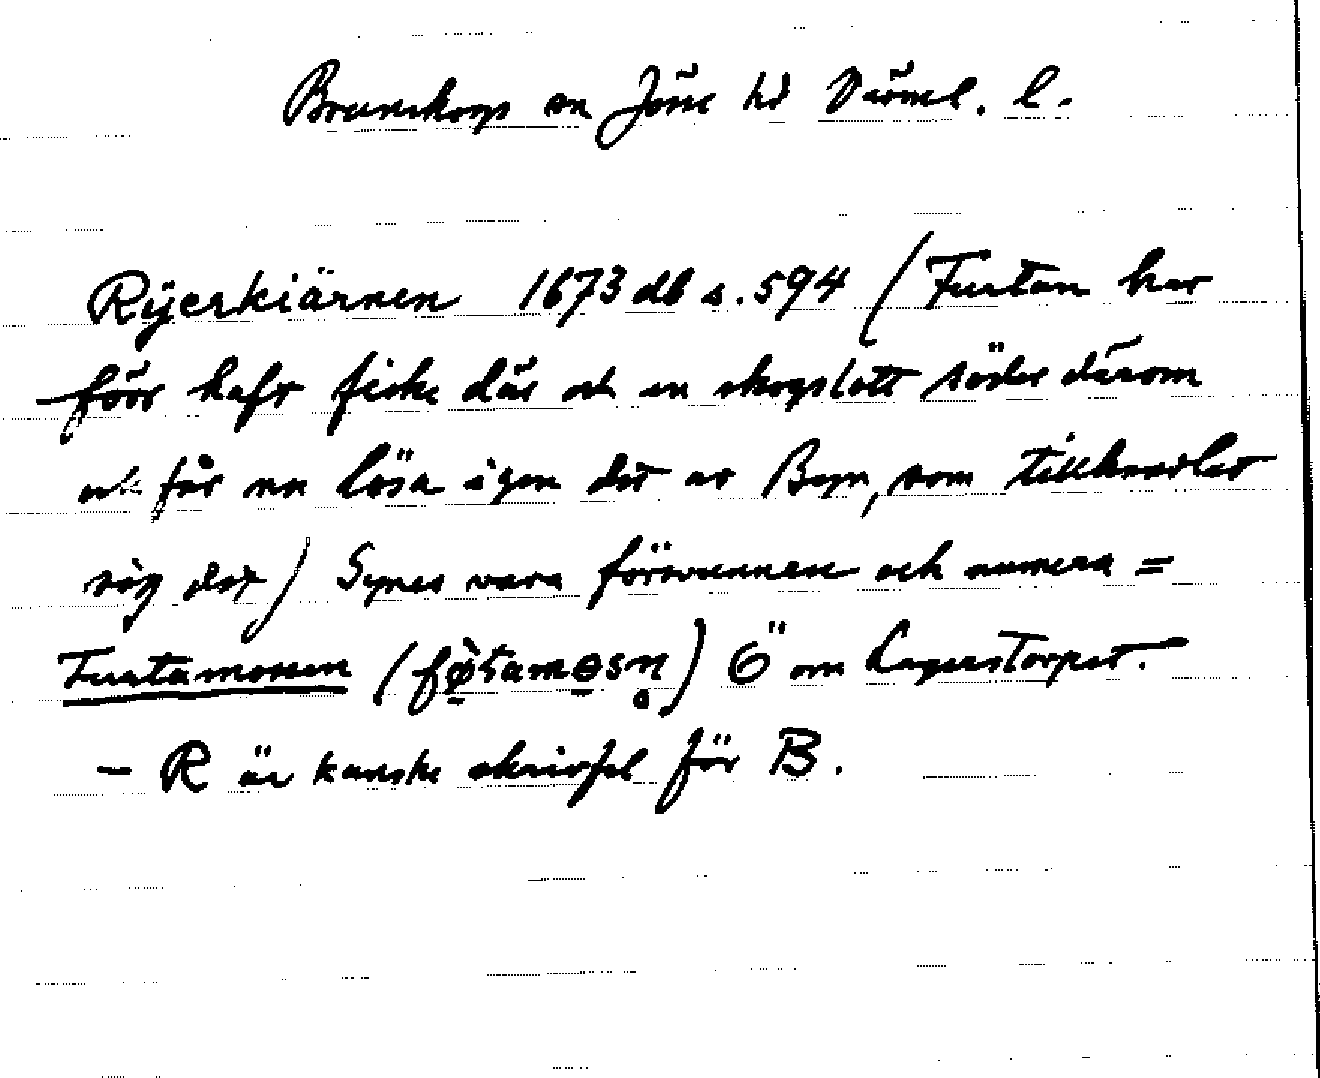 Brunskogs sn Jösse hd Värml. l.
Rÿerkiärnen 1673 db s. 594 (Furtan har
förr haft fiske där och en skogslott söder därom
och får nu lösa igen det av Byn, som tillhandlat
sig det) Synes vara försvunnen och numera =
Furtamossen (fø̀ʈamøsn̥) Ö om Lagerstorpet.
- R är kanske skrivfel för B.